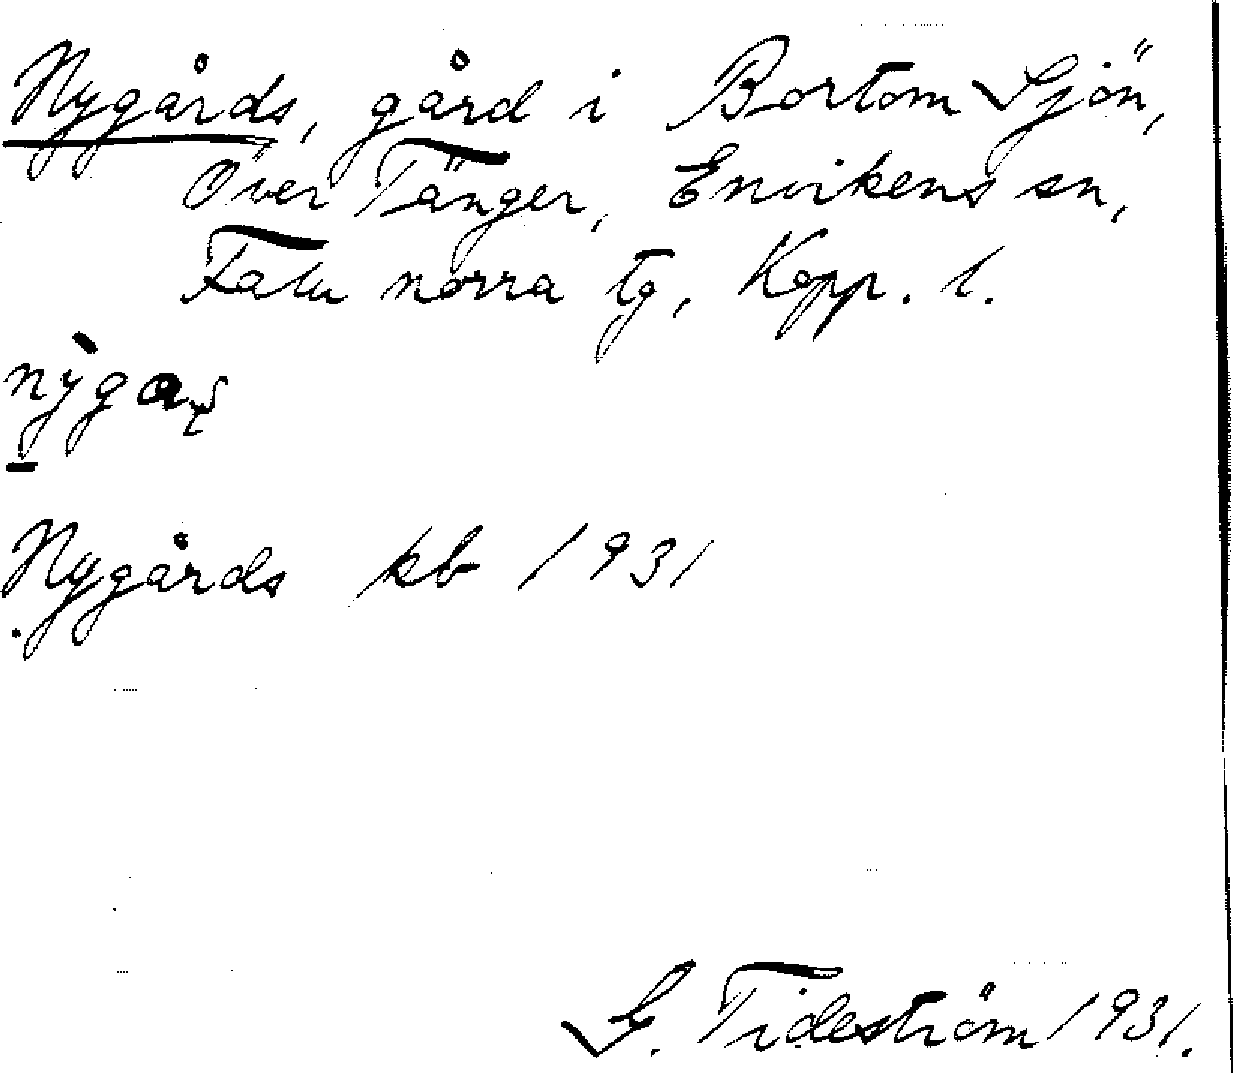 Nygårds, gård i Bortom Sjön,
Över Tänger, Envikens sn,
Falu norra tg, Kopp. l.
Nygårds kb 1931
G. Tideström 1931.